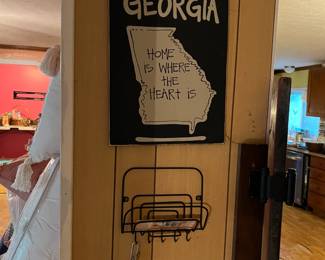 GEORGIA
HOME
IS WHERE
THE
HEART IS